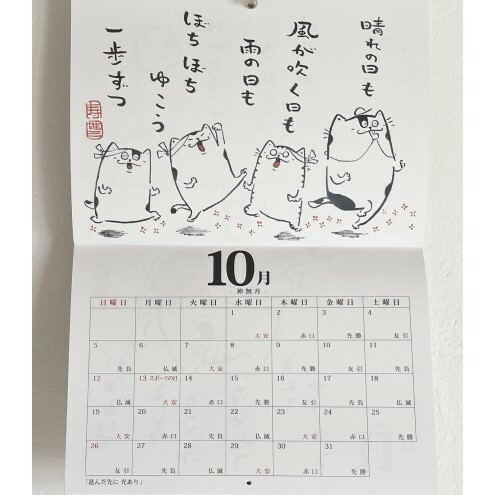 晴れの日も
風が吹く日も
雨の日も
ぼちぼち
ゆこう
一歩ずつ
10月
神無月
日曜日 月曜日 火曜日 水曜日 木曜日 金曜日 土曜日
1 2 3 4
大安 赤口 先勝 友引
5 6 7 8 9 10 11
先負 仏滅 大安 赤口 先勝 友引 先負
12 13 スポーツの日 14 15 16 17 18
仏滅 大安 赤口 先勝 友引 先負 仏滅
19 20 21 22 23 24 25
大安 赤口 先勝 友引 先負 仏滅 先勝
26 27 28 29 30 31
友引 先負 仏滅 大安 赤口 先勝
「進んだ先に 光あり」